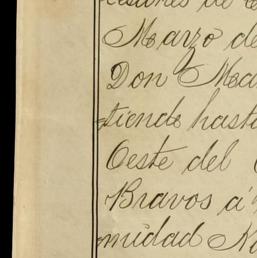 Marzo de
Don Ma
tiende hasta
Oeste del
Bravos á
midad